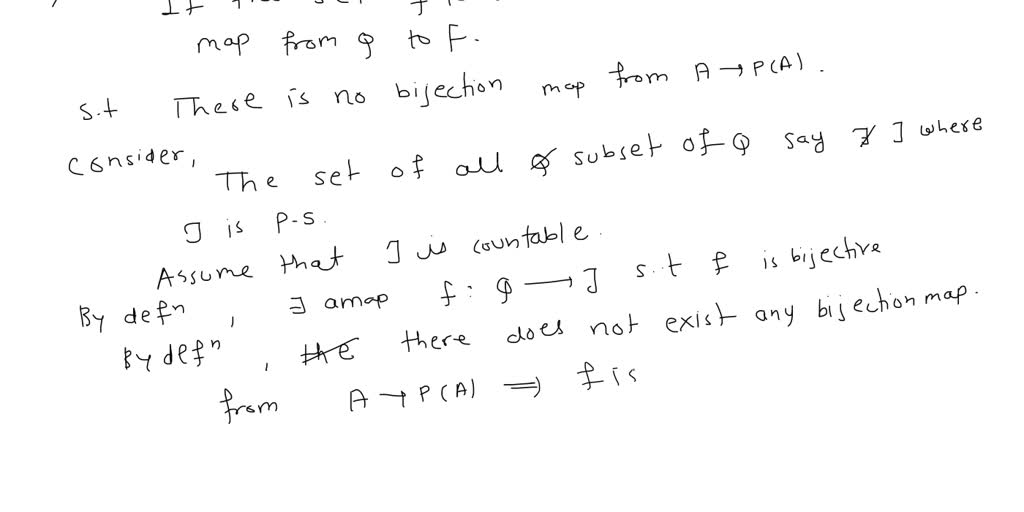 If
map from Q to F.
S.t There is no bijection map from A → P(A).
Consider,
The set of all subset of Q say J where
J is P-S.
Assume that J is countable.
By defn, ∃ amap f: Q → J s.t f is bijective
By defn, the there does not exist any bijection map.
from A → P(A) ⟹ f is